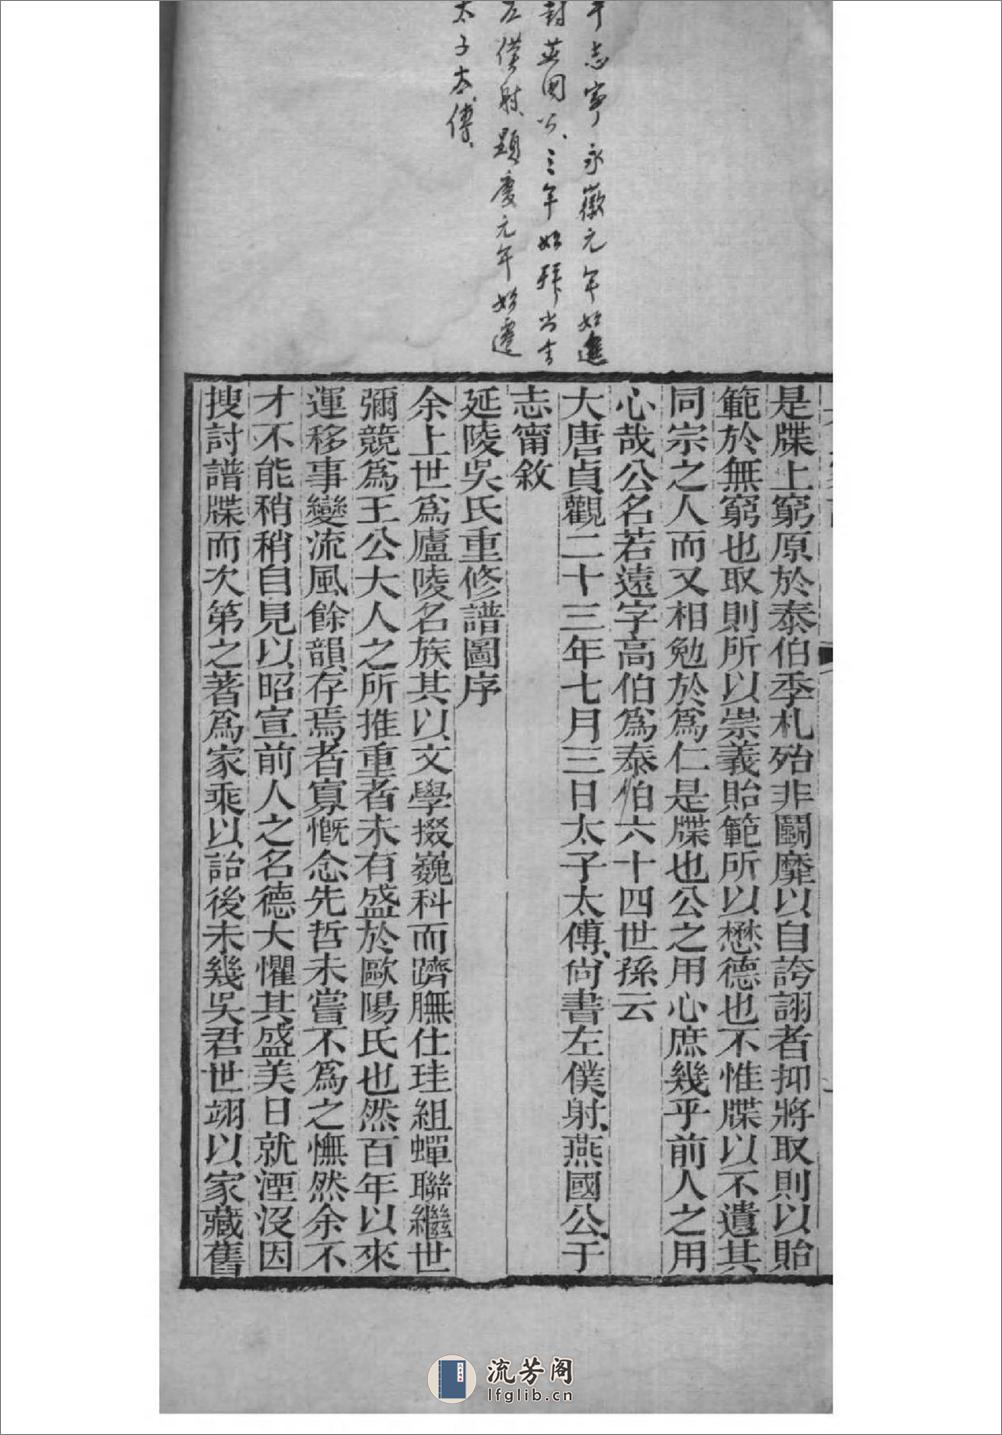 于志寧永徽元年始進
封燕國公、三年始拜尚書
左僕射、顯慶元年始遷
太子太傅、
是牒上窮原於泰伯季札殆非鬭靡以自誇詡者抑將取則以貽
範於無窮也取則所以崇義貽範所以懋德也不惟牒以不遺其
同宗之人而又相勉於爲仁是牒也公之用心庶幾乎前人之用
心哉公名若遠字高伯爲泰伯六十四世孫云
大唐貞觀二十三年七月三日太子太傅、尚書左僕射、燕國公、于
志甯敘
延陵吳氏重修譜圖序
余上世爲廬陵名族其以文學掇巍科而躋膴仕珪組蟬聯繼世
彌競爲王公大人之所推重者未有盛於歐陽氏也然百年以來
運移事變流風餘韻存焉者寡慨念先哲未嘗不爲之憮然余不
才不能稍稍自見以昭宣前人之名德大懼其盛美日就湮沒因
搜討譜牒而次第之著爲家乘以詒後未幾吳君世翊以家藏舊
流芳阁
lfglib.cn